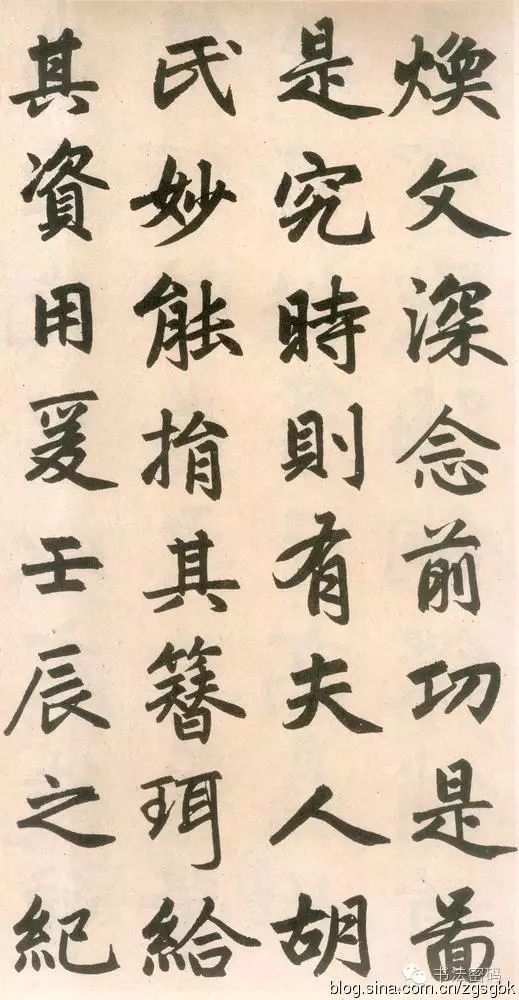 煥文深念前功是啚
是究時則有夫人胡
氏妙能捐其簪珥給
其資用爰壬辰之紀
书法密码
blog.sina.com.cn/zgsgbk